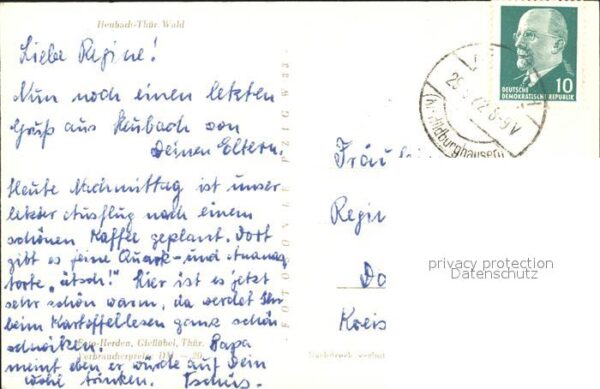 Heubach-Thür. Wald
Liebe Regine!
Nun noch einen letzten
Gruß aus Heubach von
Deinen Eltern.
Heute Nachmittag ist unser
letzter Ausflug nach einem
schönen Kaffee geplant. Dort
gibt es feine Quark- und Ananas
torte „ätsch!" Hier ist es jetzt
sehr schön warm, da werdet Ihr
beim Kartoffellesen ganz schön
schwitzen. Papa
meint eben er würde auf Dein
Wohl trinken. Tschüs.
Foto-Herden, Gießübel, Thür.
Verbraucherpreis DM -.20
10
DEUTSCHE
DEMOKRATISCHE REPUBLIK
6-9V
Hildburghausen
Fräulei
Regin
Do
Kreis
privacy protection
Datenschutz